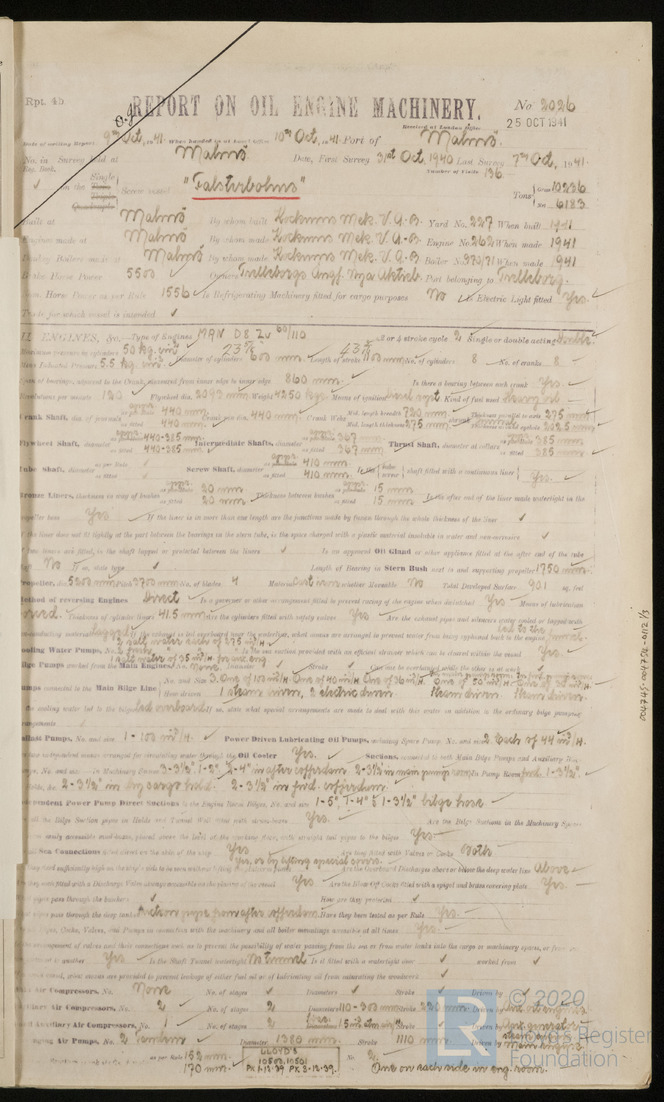 Rpt. 4b.
REPORT ON OIL ENGINE MACHINERY.
No 2026
Received at London Office
25 OCT 1941
Date of writing Report 9th Oct, 1941 When handed in at Local Office 10th Oct, 1941 Port of Malmö
No. in Survey held at Malmö Date, First Survey 31st Oct, 1940 Last Survey 7th Oct, 1941
Reg. Book. Number of Visits 136
on the Single
Screw vessel "Falsterbohus" Tons Gross 10236
Quadruple Net 6183
Built at Malmö By whom built Kockums Mek. V. A-B. Yard No. 227 When built 1941
Engines made at Malmö By whom made Kockums Mek. V. A-B. Engine No. 262 When made 1941
Donkey Boilers made at Malmö By whom made Kockums Mek. V. A-B. Boiler No. 370/71 When made 1941
Brake Horse Power 5500 Owners Trelleborgs Ångf. Nya Aktieb. Port belonging to Trelleborg.
Nom. Horse Power as per Rule 1556 Is Refrigerating Machinery fitted for cargo purposes No Is Electric Light fitted Yes.
Trade for which vessel is intended
OIL ENGINES, &c.—Type of Engines MAN D8 Zu 60/110 2 or 4 stroke cycle 2 Single or double acting double
Maximum pressure in cylinders 50 kg. cm² Diameter of cylinders 600 mm. Length of stroke No. of cylinders 8 No. of cranks 8
Mean Indicated Pressure 5.5 kg. cm²
Span of bearings, adjacent to the Crank, measured from inner edge to inner edge 860 mm. Is there a bearing between each crank Yes.
Revolutions per minute 120 Flywheel dia. 2093 mm. Weight 4250 kgs. Means of ignition Kind of fuel used
Crank Shaft, dia. of journals 440 mm. Crank pin dia. 440 mm. Crank Webs Mid. length breadth 720 mm. Thickness parallel to axis 275 mm.
as fitted 440 mm. Mid. length thickness 275 mm.
Flywheel Shaft, diameter 440-385 mm. Intermediate Shafts, diameter 367 mm. Thrust Shaft, diameter at collars 385 mm.
as fitted 440-385 mm. as fitted 367 mm. as fitted 385 mm.
Tube Shaft, diameter Screw Shaft, diameter 410 mm. Is the tube screw shaft fitted with a continuous liner Yes.
as fitted 410 mm.
Bronze Liners, thickness in way of bushes 20 mm. Thickness between bushes 15 mm. Is the after end of the liner made watertight in the
as fitted 20 mm. as fitted 15 mm.
propeller boss Yes If the liner is in more than one length are the junctions made by fusion through the whole thickness of the liner
If the liner does not fit tightly at the part between the bearings in the stern tube, is the space charged with a plastic material insoluble in water and non-corrosive
If two liners are fitted, is the shaft lapped or protected between the liners Is an approved Oil Gland or other appliance fitted at the after end of the tube
shaft No If so, state type Length of Bearing in Stern Bush next to and supporting propeller 1750 mm.
Propeller, dia. 5200 mm. Pitch 3700 mm. No. of blades 4 Material whether Moveable No Total Developed Surface 90.1 sq. feet
Method of reversing Engines Direct Is a governor or other arrangement fitted to prevent racing of the engine when declutched Yes Means of lubrication
forced. Thickness of cylinder liners 41.5 mm. Are the cylinders fitted with safety valves Yes Are the exhaust pipes and silencers water cooled or lagged with
non-conducting material lagged If the exhaust is led overboard near the waterline, what means are arranged to prevent water from being syphoned back to the engine
Cooling Water Pumps, No. Is the sea suction provided with an efficient strainer which can be cleared within the vessel Yes.
Bilge Pumps worked from the Main Engines, No. None Diameter Stroke Can one be overhauled while the other is at work
Pumps connected to the Main Bilge Line No. and Size 3. One of 100 m³/H. One of 40 m³/H. One of 36 m³/H.
How driven 1 steam driven, 2 electric driven
Is the cooling water led to the bilges led overboard If so, state what special arrangements are made to deal with this water in addition to the ordinary bilge pumping
arrangements
Ballast Pumps, No. and size 1 - 100 m³/H. Power Driven Lubricating Oil Pumps, including Spare Pump No. and size 2. Each of 44 m³/H.
Are two independent means arranged for circulating water through the Oil Cooler Yes. Suctions, connected to both Main Bilge Pumps and Auxiliary Bilge
Pumps, No. and size:—In Machinery Spaces 3-3½" 1-2" 2-4" in after cofferdam. 2-3½" in main pumproom. In Pump Room
Holds, &c. 2-3½" in dry cargo hold. 2-3½" in ford. cofferdam.
Independent Power Pump Direct Suctions to the Engine Room Bilges, No. and size 1-5", 1-4" & 1-3½" bilge hose
Are all the Bilge Suction pipes in Holds and Tunnel Well fitted with strum-boxes Yes. Are the Bilge Suctions in the Machinery Spaces
led from easily accessible mud-boxes, placed above the level of the working floor, with straight tail pipes to the bilges Yes
Are all Sea Connections fitted direct on the skin of the ship Yes Are they fitted with Valves or Cocks Both
Are they fixed sufficiently high on the ship's side to be seen without lifting the platform plates Yes, or by lifting special doors. Are the Overboard Discharges above or below the deep water line Above
Are they each fitted with a Discharge Valve always accessible on the plating of the vessel Yes Are the Blow Off Cocks fitted with a spigot and brass covering plate Yes.
What pipes pass through the bunkers How are they protected
What pipes pass through the deep tanks Suction pipe from after cofferdam. Have they been tested as per Rule Yes.
Are all Pipes, Cocks, Valves, and Pumps in connection with the machinery and all boiler mountings accessible at all times Yes.
Is the arrangement of valves and their connections such as to prevent the possibility of water passing from the sea or from water tanks into the cargo or machinery spaces, or from one
compartment to another Yes Is the Shaft Tunnel watertight No tunnel Is it fitted with a watertight door worked from
If a wood vessel, what means are provided to prevent leakage of either fuel oil or of lubricating oil from saturating the woodwork
Main Air Compressors, No. None No. of stages Diameters Stroke Driven by
Auxiliary Air Compressors, No. 2 No. of stages 2 Diameters 110-300 mm. Stroke 220 mm. Driven by
Small Auxiliary Air Compressors, No. 1 No. of stages 2 Diameters Stroke Driven by
Scavenging Air Pumps, No. 2 tandem Diameter 1380 mm. Stroke 1110 mm. Driven by Main engine.
as per Rule 152 mm. No. 2.
170 mm. One on each side in eng. room.
LLOYD'S
10503,10501
PX 1-12-39 PX 2-12-39.
004745-004754-0112 1/3
LR
© 2020
Lloyd's Register
Foundation